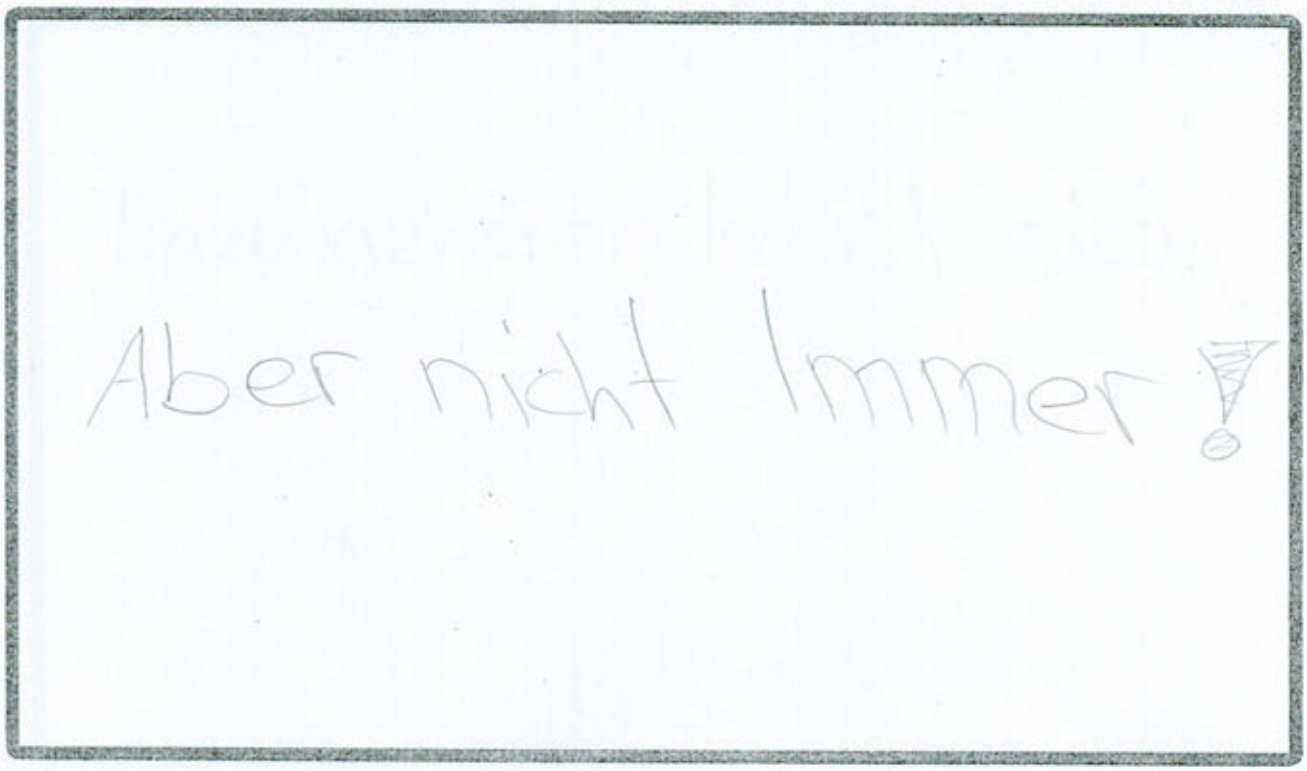 Aber nicht Immer!